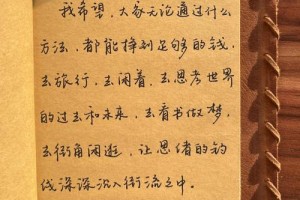 我希望,大家无论通过什么
方法,都能挣到足够的钱,
去旅行,去闲着,去思考世界
的过去和未来,去看书做梦,
去街角闲逛,让思绪的钓
线深深沉入街流之中。